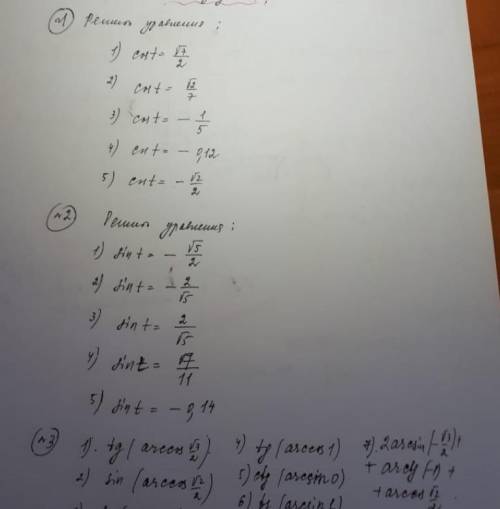 №1 Решить уравнения:
1) cos t = √7/2
2) cos t = √2/7
3) cos t = - 1/5
4) cos t = - 0,12
5) cos t = - √2/2
№2 Решить уравнения:
1) sin t = - √5/2
2) sin t = - 2/√5
3) sin t = 2/√5
4) sin t = √7/11
5) sin t = - 0,14
№3 1). tg (arccos √3/2) 4) tg (arccos 1) 7). 2 arcsin (- √3/2) +
2) sin (arccos √2/2) 5) ctg (arcsin 0) + arctg (-1) +
6) tg (arcsin + arccos √2/2